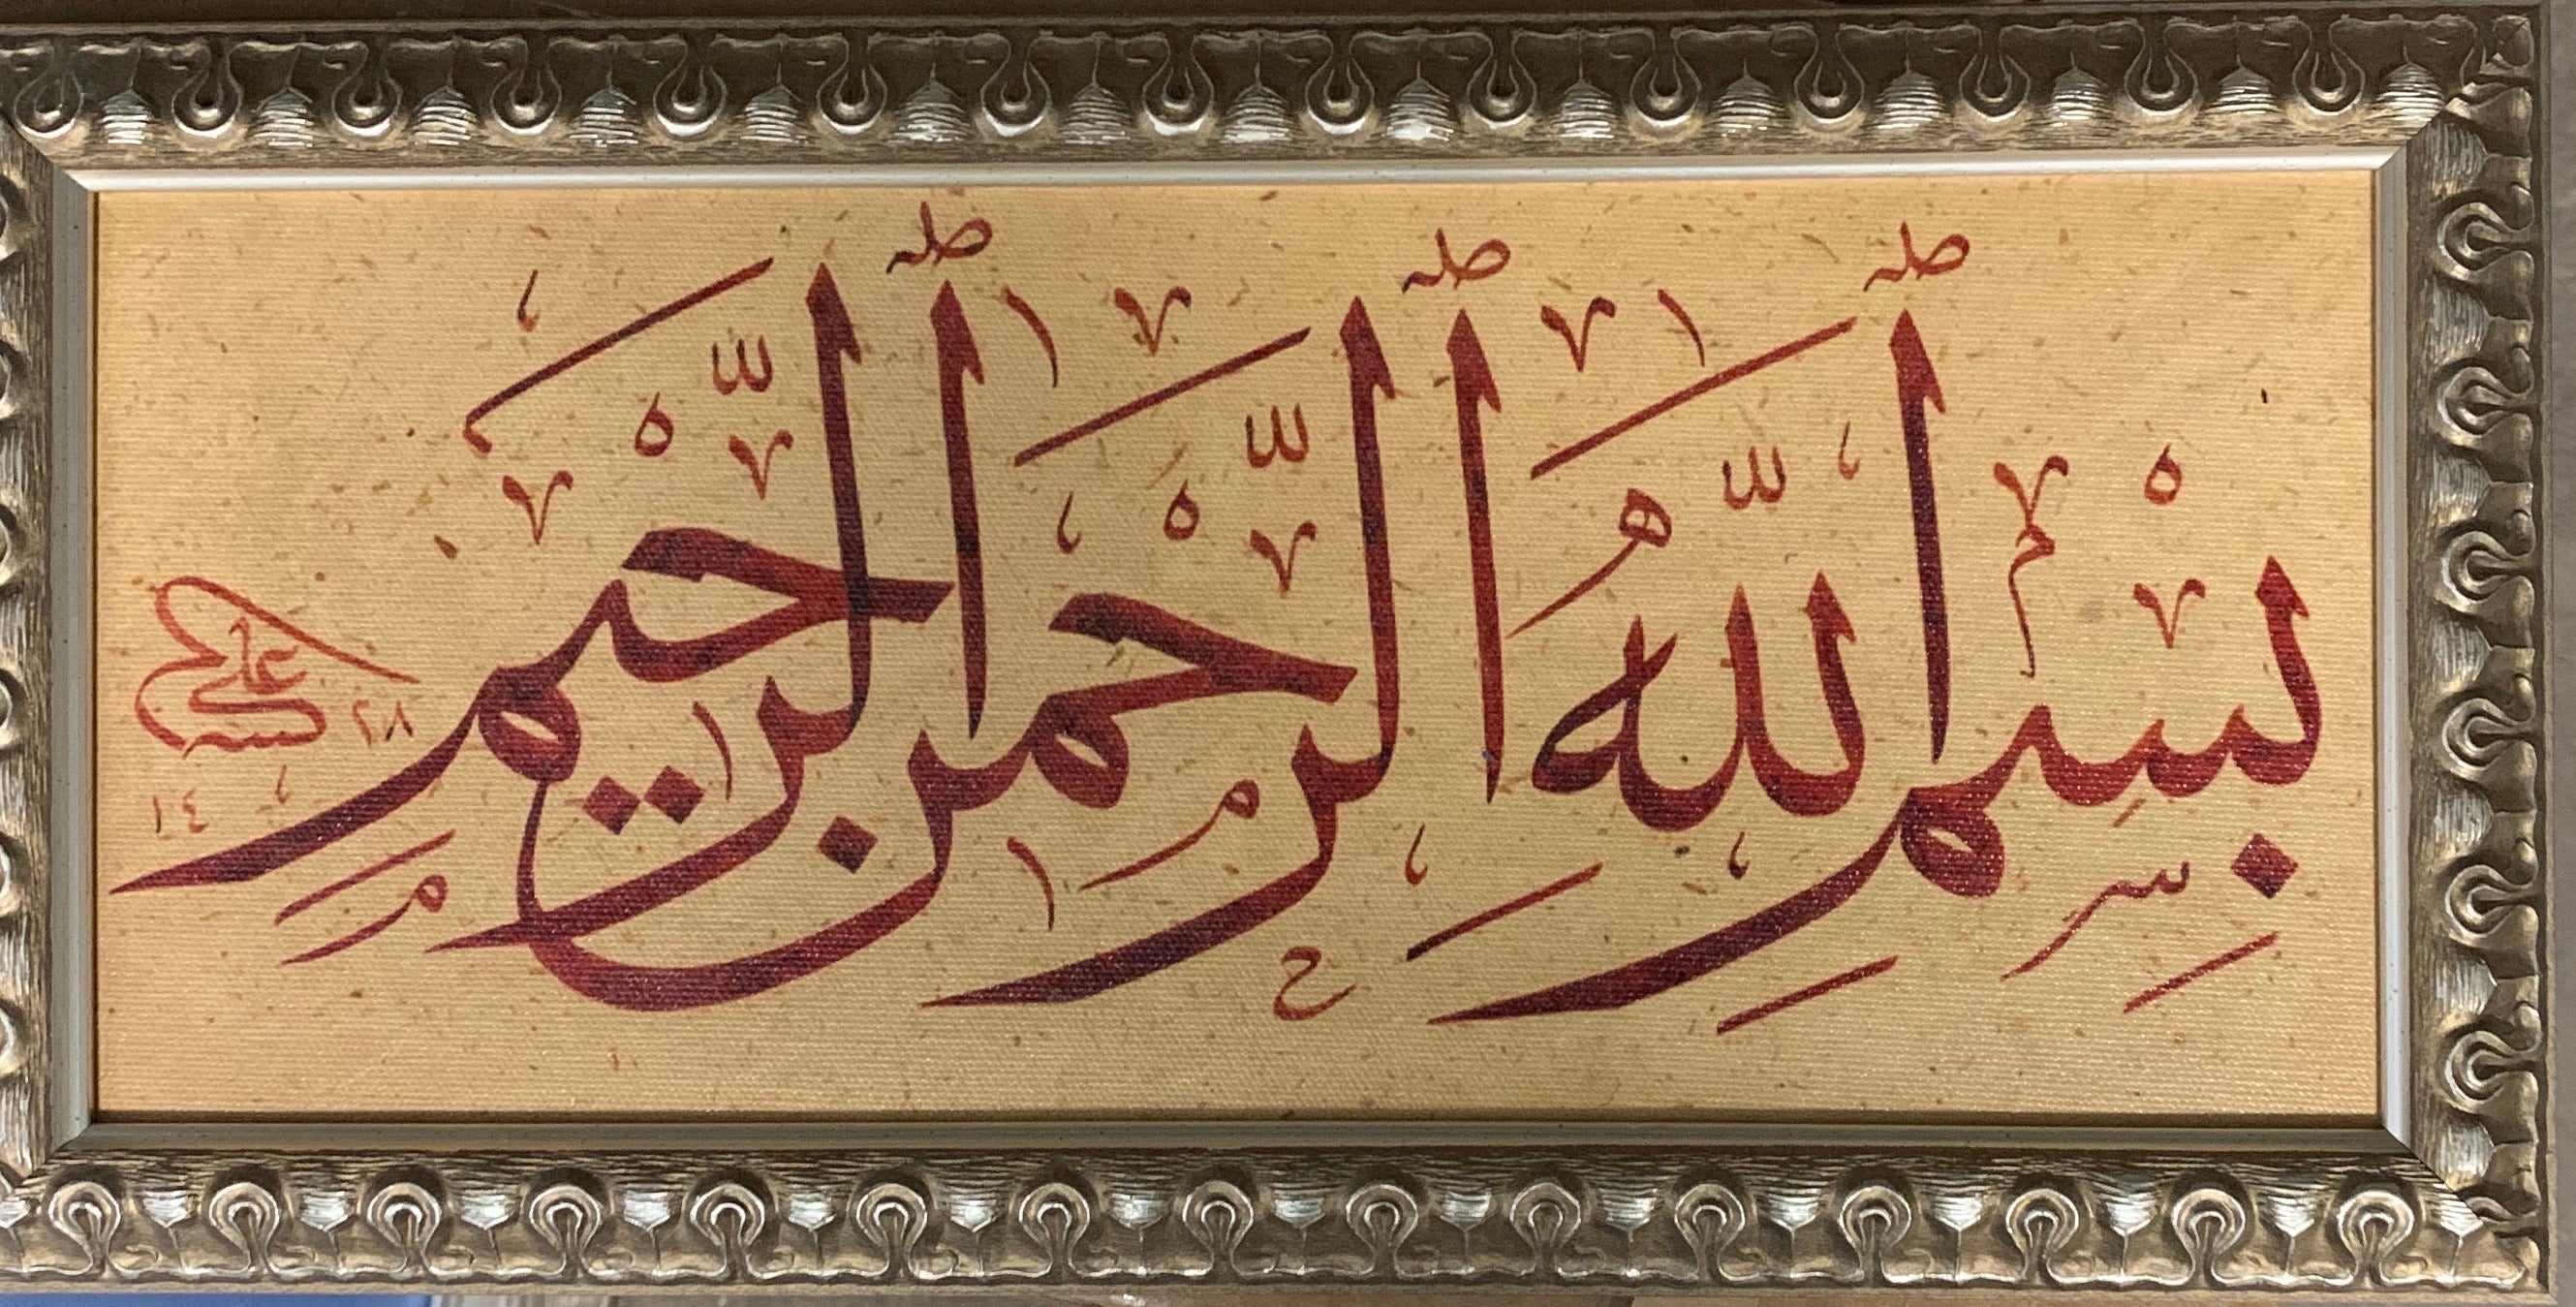 بِسْمِ اللهِ الرَّحْمٰنِ الرَّحِيْمِ
علي
١٤ ٢٨